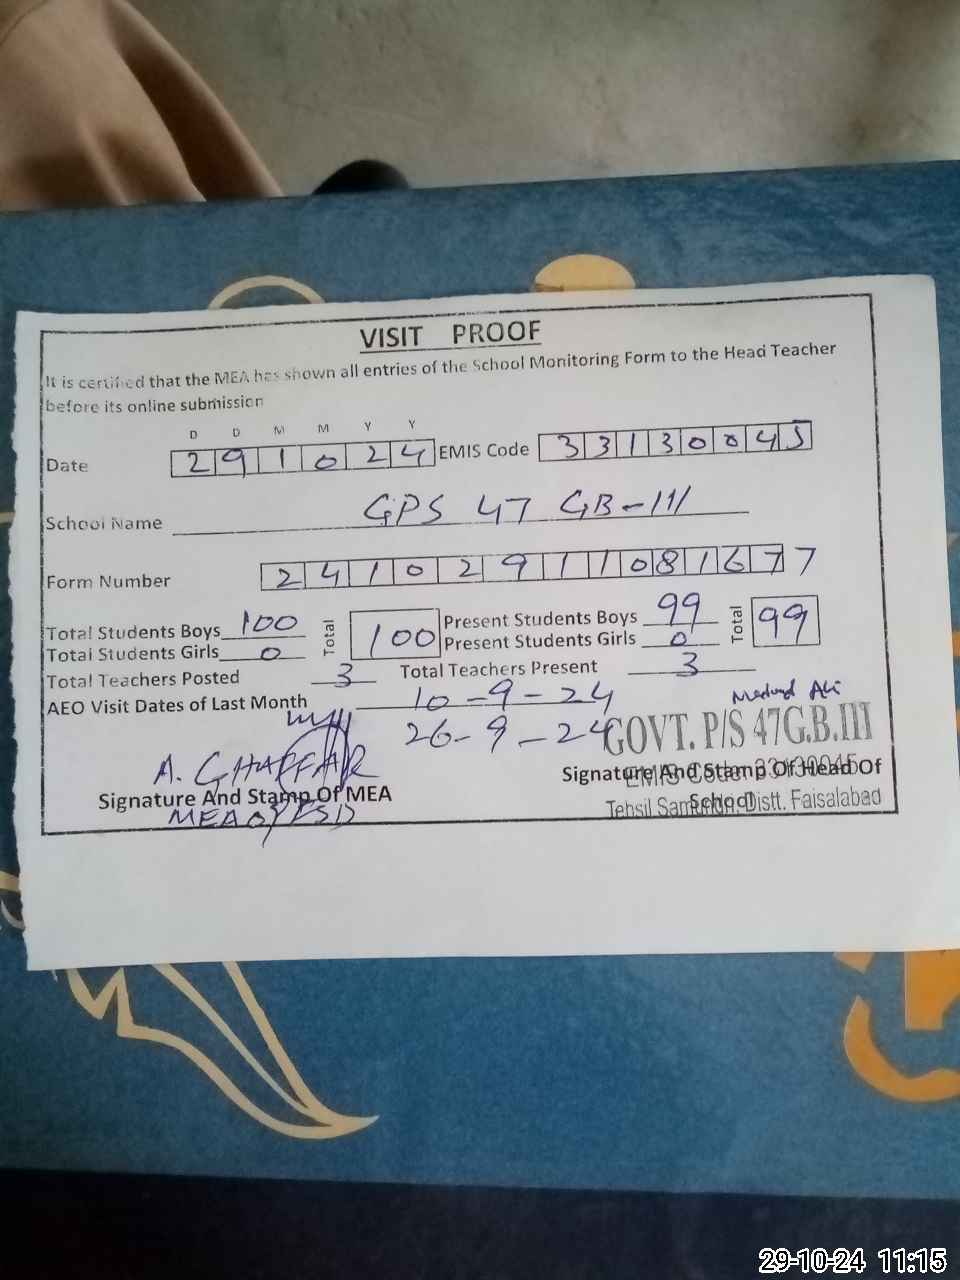 VISIT PROOF
It is certified that the MEA has shown all entries of the School Monitoring Form to the Head Teacher
before its online submission
D D M M Y Y
Date 2 9 1 0 2 4 EMIS Code 3 3 1 3 0 0 4 5
School Name GPS 47 GB-III
Form Number 2 4 1 0 2 9 1 1 0 8 1 6 7 7
Total Students Boys 100 Total 100 Present Students Boys 99 Total 99
Total Students Girls 0 Present Students Girls 0
Total Teachers Posted 3 Total Teachers Present 3
AEO Visit Dates of Last Month 10-9-24
26-9-24
Ali
GOVT. P/S 47G.B.III
A. GHAFFAR
Signature And Stamp Of Head Of
School
EMIS Code:
Signature And Stamp Of MEA
Tehsil Distt. Faisalabad
MEA FSD
29-10-24 11:15